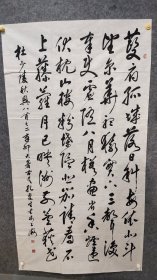 夔府孤城落日斜每依北斗
望京華聽猿實下三聲淚
奉使虛隨八月槎畫省香爐違
伏枕山樓粉堞隱悲笳請看石
上藤蘿月已映洲前蘆荻花
杜少陵秋興八首之二